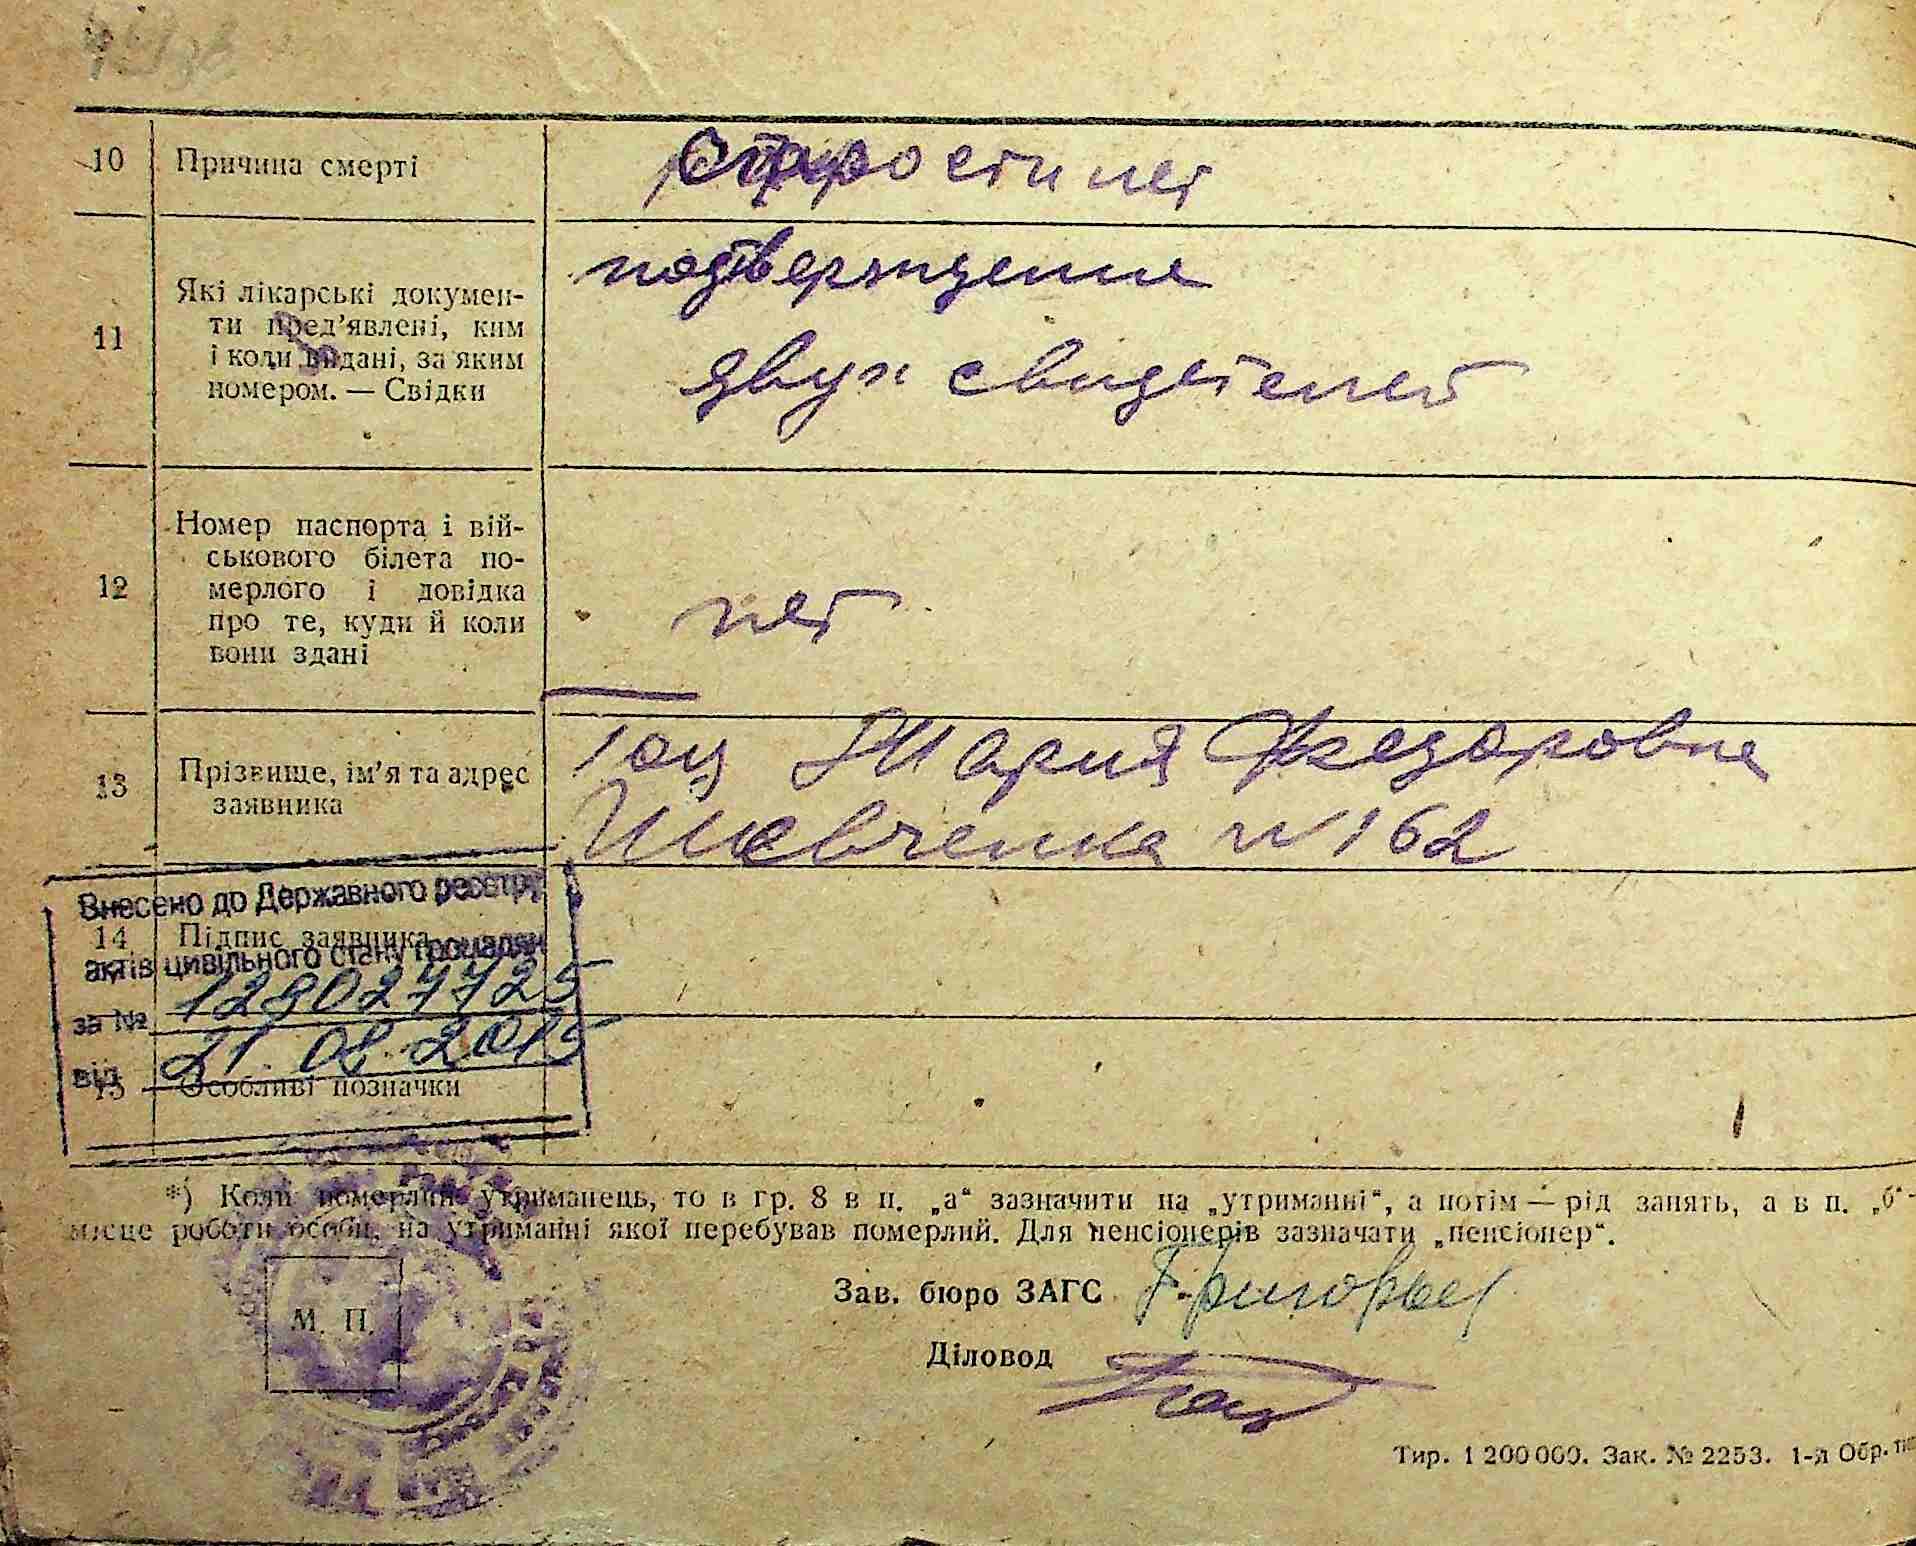 10 Причина смерті
старости лет
11 Які лікарські докумен-
ти пред'явлені, ким
і коли видані, за яким
номером. — Свідки
подтверждение
двух свидетелей
12 Номер паспорта і вій-
ськового білета по-
мерлого і довідка
про те, куди й коли
вони здані
нет
13 Прізвище, ім'я та адрес
заявника
Гоц Мария Федоровна
Шевченка № 162
Внесено до Державного реєстру
14 Підпис заявника
актів цивільного стану громадян
за № 129027725
від 21.08.2015
15 Особливі позначки
*) Коли померлий утриманець, то в гр. 8 в п. „а“ зазначити на „утриманні“, а потім — рід занять, а в п. „б“-
місце роботи особи, на утриманні якої перебував померлий. Для пенсіонерів зазначати „пенсіонер“.
М. П.
Зав. бюро ЗАГС
Діловод
Тир. 1 200 000. Зак. № 2253. 1-я Обр. тип